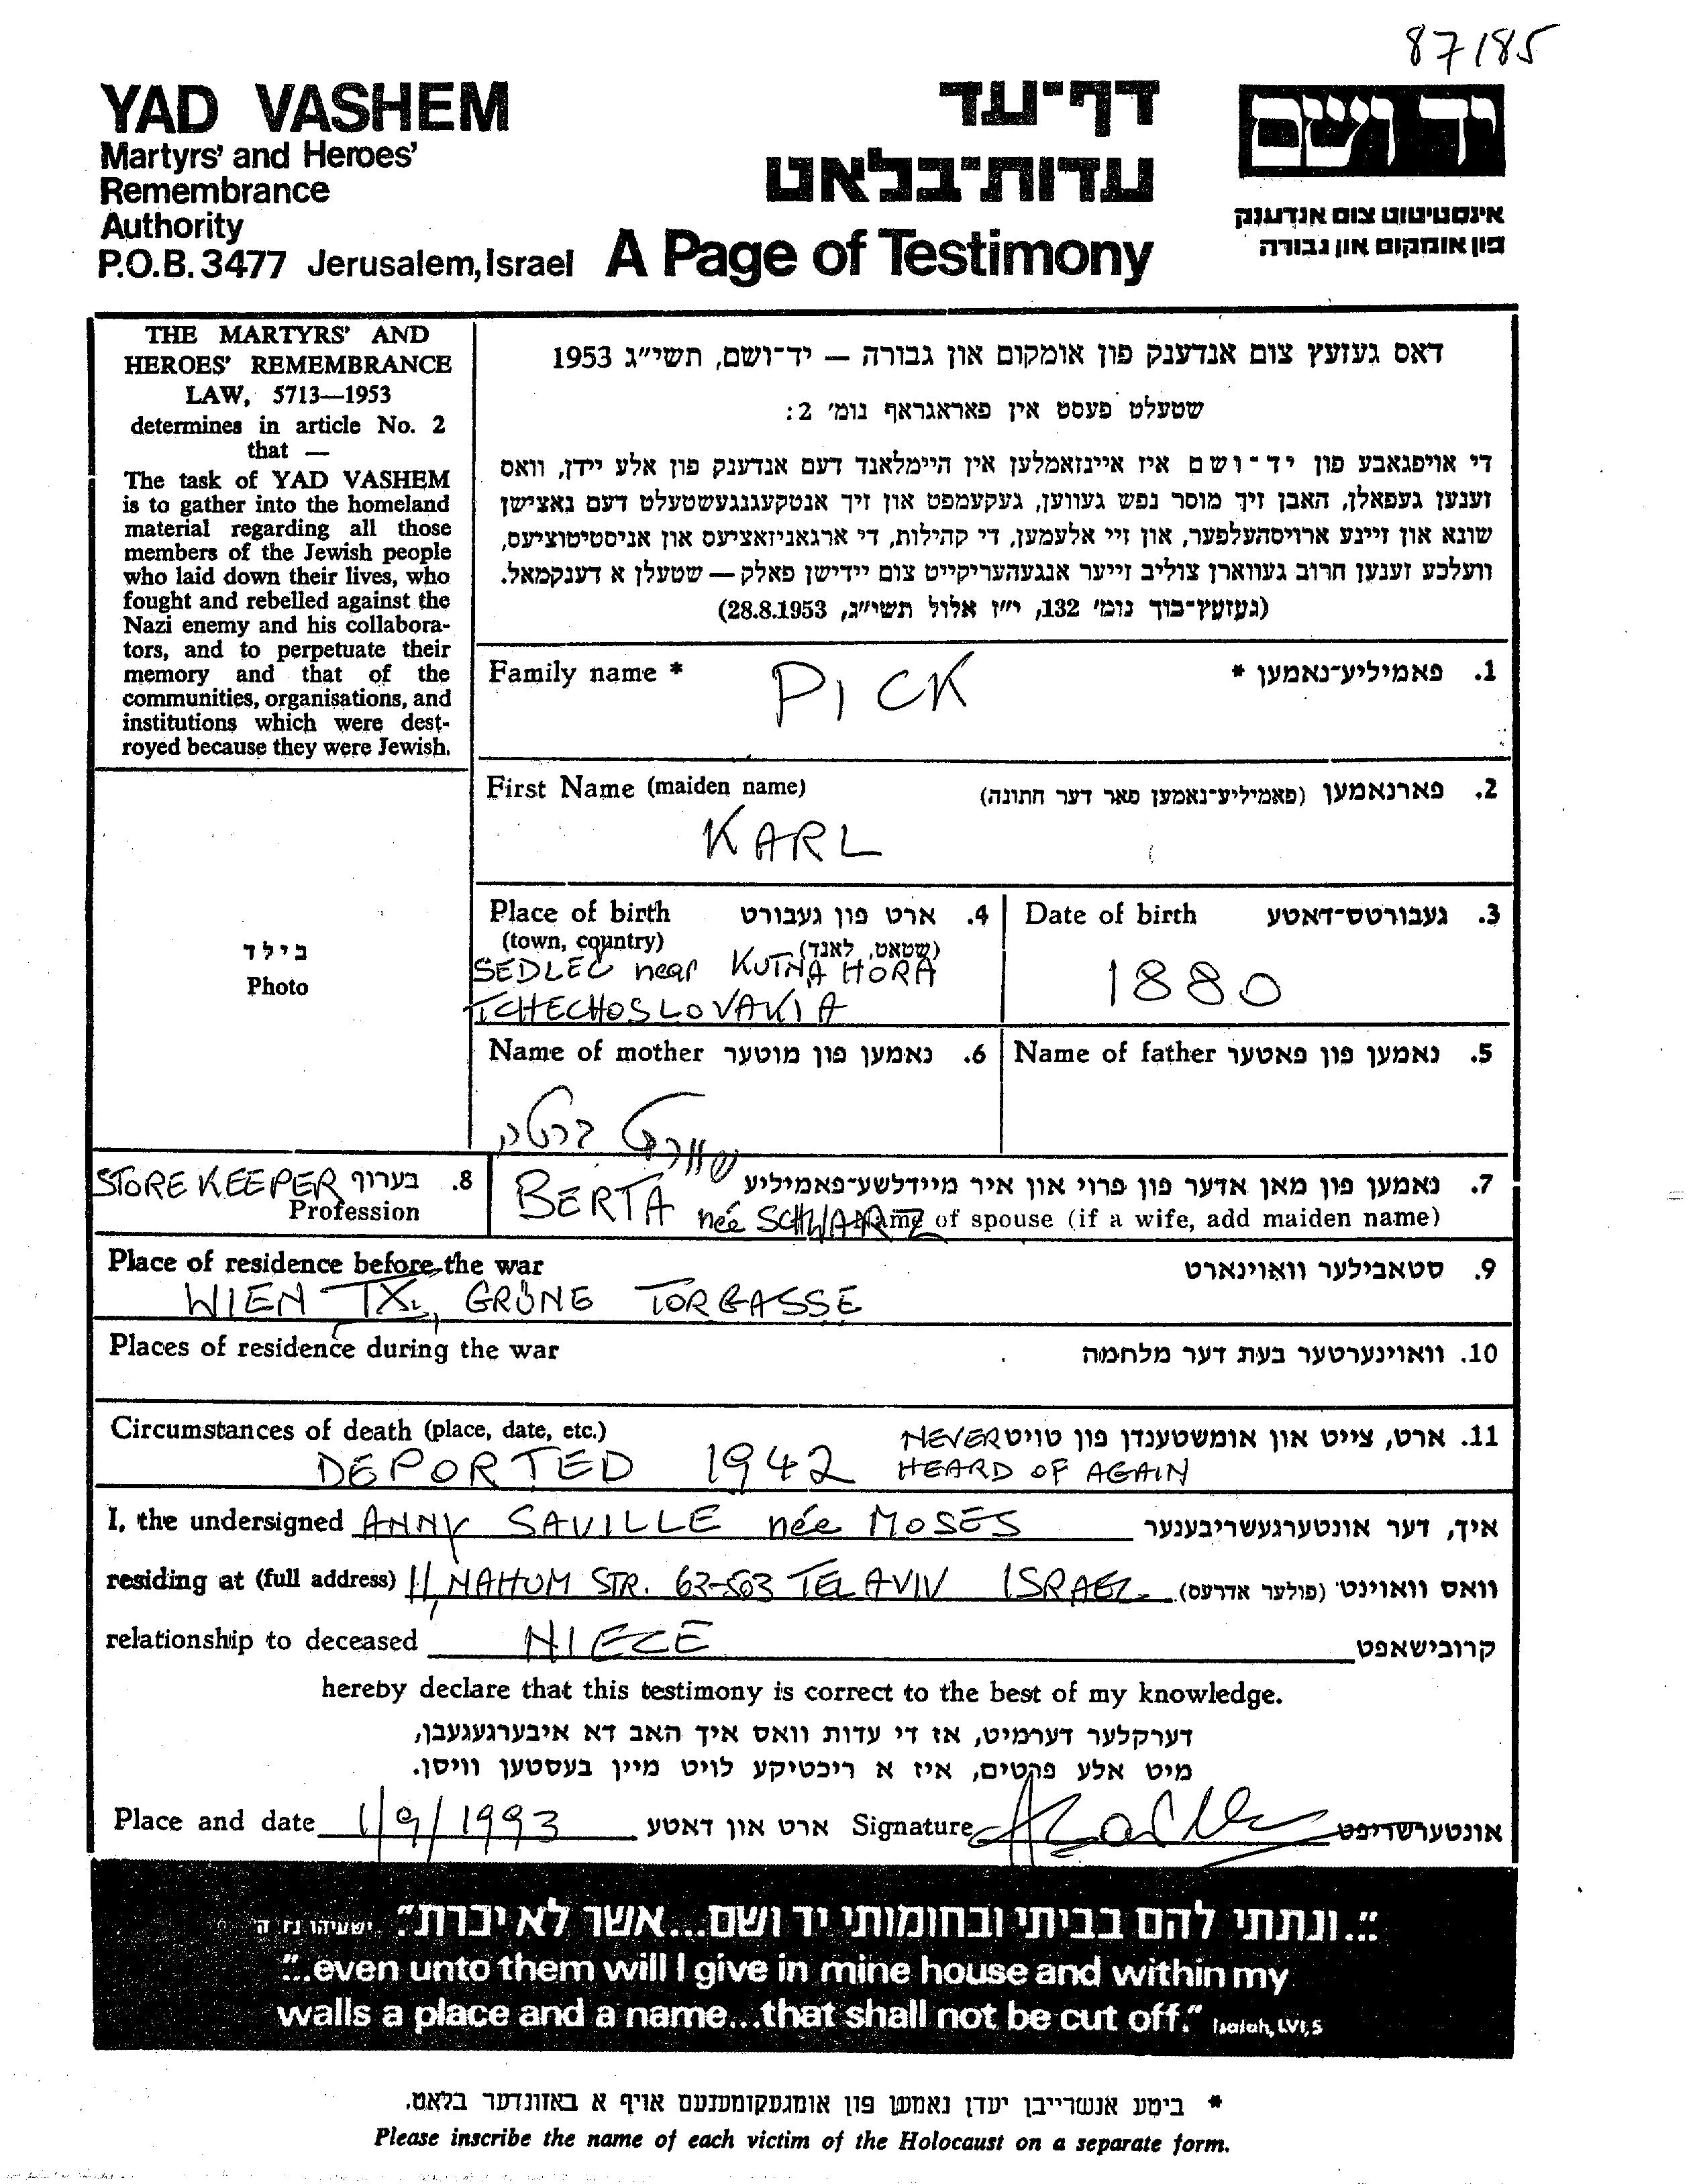 87/85
YAD VASHEM
Martyrs' and Heroes'
Remembrance
Authority
P.O.B. 3477 Jerusalem, Israel
דף־עד
עדות־בלאט
A Page of Testimony
יד ושם
אינסטיטוט צום אנדענק
פון אומקום און גבורה
THE MARTYRS' AND
HEROES' REMEMBRANCE
LAW, 5713—1953
determines in article No. 2
that —
The task of YAD VASHEM
is to gather into the homeland
material regarding all those
members of the Jewish people
who laid down their lives, who
fought and rebelled against the
Nazi enemy and his collabora-
tors, and to perpetuate their
memory and that of the
communities, organisations, and
institutions which were dest-
royed because they were Jewish.
דאס געזעץ צום אנדענק פון אומקום און גבורה — יד־ושם, תשי״ג 1953
שטעלט פעסט אין פאראגראף נומ׳ 2:
די אויפגאבע פון יד־ושם איז איינזאמלען אין היימלאנד דעם אנדענק פון אלע יידן, וואס
זענען געפאלן, האבן זיך מוסר נפש געווען, געקעמפט און זיך אנטקעגנגעשטעלט דעם נאצישן
שונא און זיינע ארויסהעלפער, און זיי אלעמען, די קהילות, די ארגאניזאציעס און אניסטיטוציעס,
וועלכע זענען חרוב געווארן צוליב זייער אנגעהעריקייט צום יידישן פאלק — שטעלן א דענקמאל.
(געזעץ־בוך נומ׳ 132, י״ז אלול תשי״ג, 28.8.1953)
Family name * PICK 1. פאמיליע־נאמען *
First Name (maiden name) 2. פארנאמען (פאמיליע־נאמען פאר דער חתונה)
KARL
בילד
Photo
Place of birth 4. ארט פון געבורט
(town, country) (שטאט, לאנד)
SEDLEC near KUTNA HORA
TCHECHOSLOVAKIA
Date of birth 3. געבורטס־דאטע
1880
Name of mother 6. נאמען פון מוטער
Name of father 5. נאמען פון פאטער
שוורץ ברטה
STORE KEEPER 8. בערוף
Profession
7. נאמען פון מאן אדער פון פרוי און איר מיידלשע־פאמיליע
BERTA née SCHWARZ Name of spouse (if a wife, add maiden name)
Place of residence before the war 9. סטאבילער וואוינארט
WIEN IX., GRÜNE TORGASSE
Places of residence during the war 10. וואוינערטער בעת דער מלחמה
Circumstances of death (place, date, etc.) 11. ארט, צייט און אומשטענדן פון טויט
DEPORTED 1942 NEVER HEARD OF AGAIN
I, the undersigned ANNY SAVILLE née MOSES איך, דער אונטערגעשריבענער
residing at (full address) 11, NAHUM STR. 63-503 TEL AVIV ISRAEL וואס וואוינט (פולער אדרעס)
relationship to deceased NIECE קרובישאפט
hereby declare that this testimony is correct to the best of my knowledge.
דערקלער דערמיט, אז די עדות וואס איך האב דא איבערגעגעבן,
מיט אלע פרטים, איז א ריכטיקע לויט מיין בעסטען וויסן.
Place and date 1/9/1993 ארט און דאטע Signature אונטערשריפט
"...ונתתי להם בביתי ובחומותי יד ושם....אשר לא יכרת" ישעיהו נו ה
"...even unto them will I give in mine house and within my
walls a place and a name...that shall not be cut off." Isaiah, LVI, 5
* ביטע אנשרייבן יעדן נאמען פון אומגעקומענעם אויף א באזונדער בלאט.
Please inscribe the name of each victim of the Holocaust on a separate form.